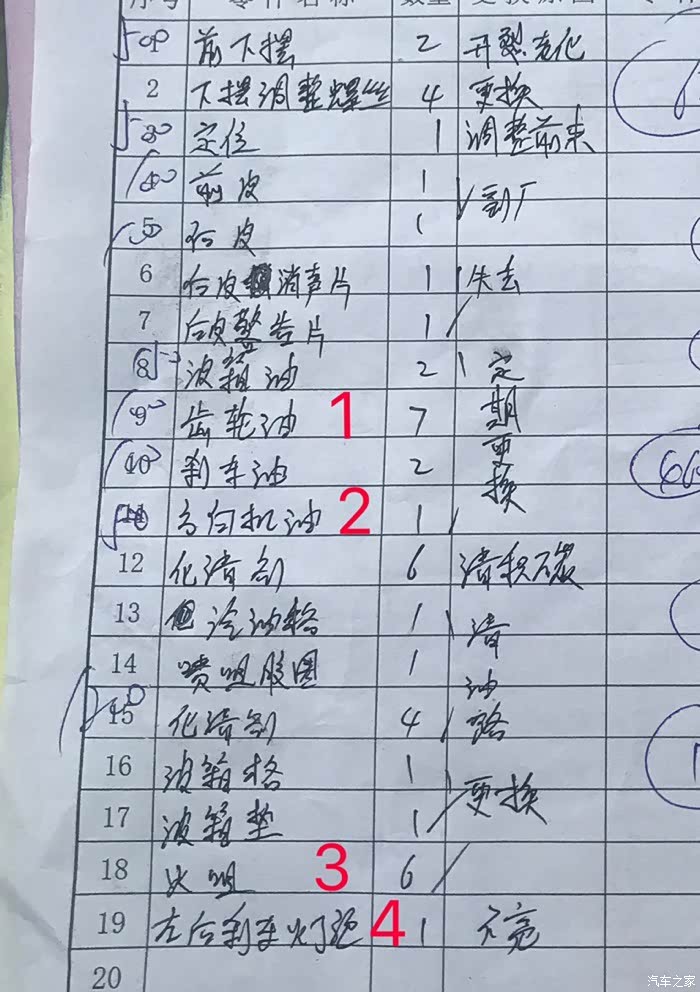 序号 零件名称 数量 更换原因
1 前下摆 2 开裂老化
2 下摆调整螺丝 4 更换
3 定位 1 调整前束
4 前皮 1 到厂
5 后皮 1
6 后皮消声片 1 失去
7 后皮警告片 1
8 波箱油 2 定
9 齿轮油 1 7 期
10 刹车油 2 更换
11 方向机油 2 1
12 化清剂 6 清积碳
13 冷油格 1 清
14 喷咀胶圈 1 油
15 化清剂 4 路
16 波箱格 1 更换
17 波箱垫 1
18 火咀 3 6
19 左后刹车灯泡 4 1 不亮
20
汽车之家